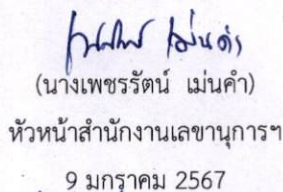 (นางเพชรรัตน์ เม่นคำ)
หัวหน้าสำนักงานเลขานุการฯ
9 มกราคม 2567